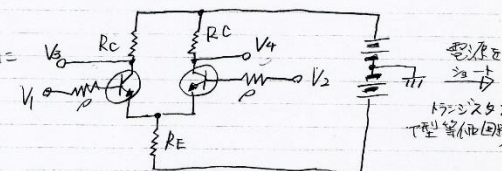 RC
RC
V3
V4
V1
ρ
ρ
V2
RE
電源を
ショート
トランジスタ
T型等価回路